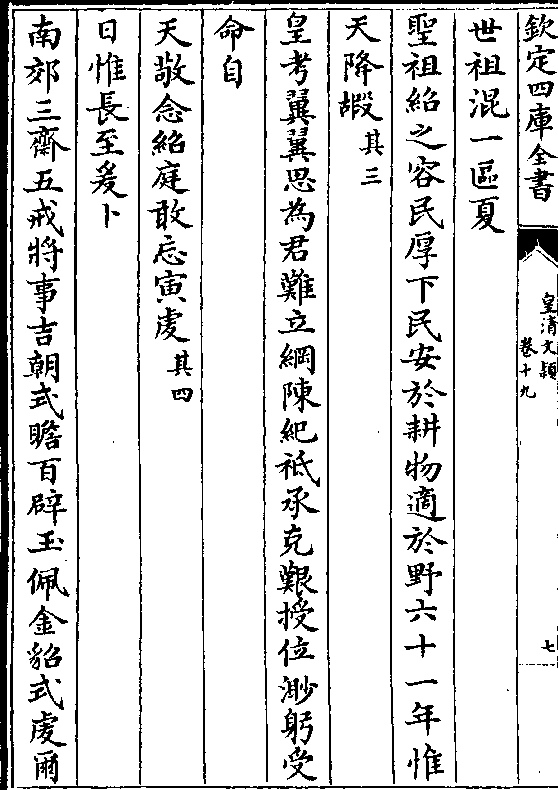 欽定四庫全書
皇清文穎
卷十九
七
世祖混一區夏
聖祖紹之容民厚下民安於耕物適於野六十一年惟
天降嘏其三
皇考翼翼思為君難立綱陳紀祗承克艱授位渺躬受
命自
天敬念紹庭敢忘寅虔其四
日惟長至爰卜
南郊三齋五戒將事吉朝式瞻百辟玉佩金貂式虔爾